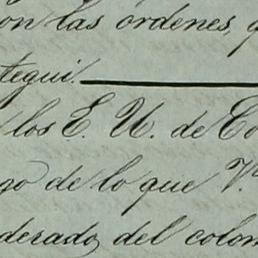 on las ordenes, q
tegui.
los E. U. de Co
go de lo que V.
derado, del colom